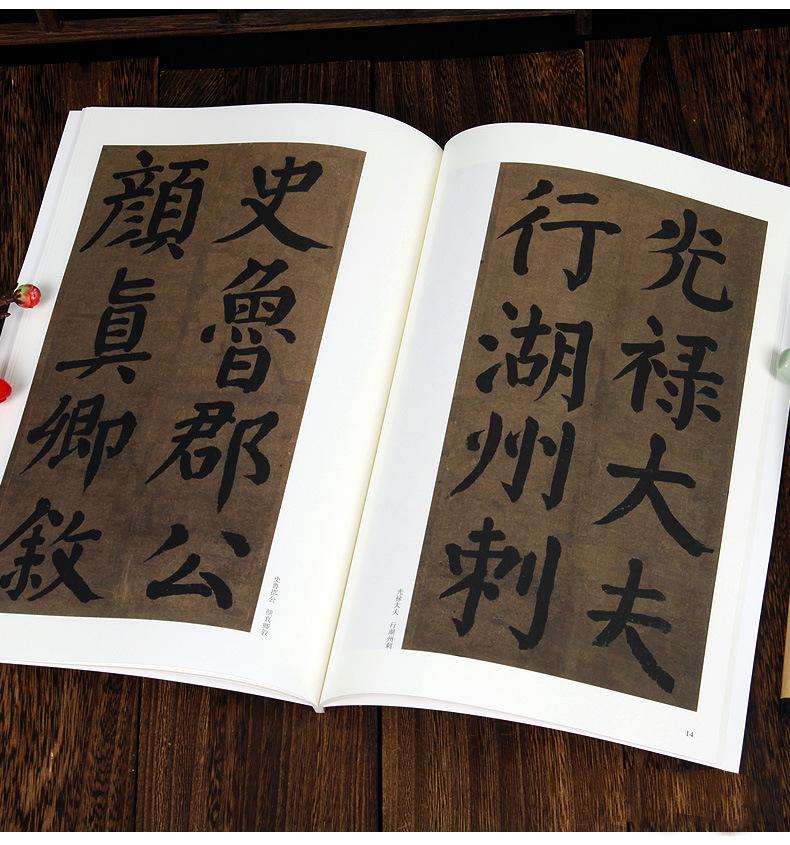 光禄大夫
行湖州刺
光禄大夫　行湖州刺
14
史魯郡公
顔眞卿敘
史鲁郡公　颜真卿叙